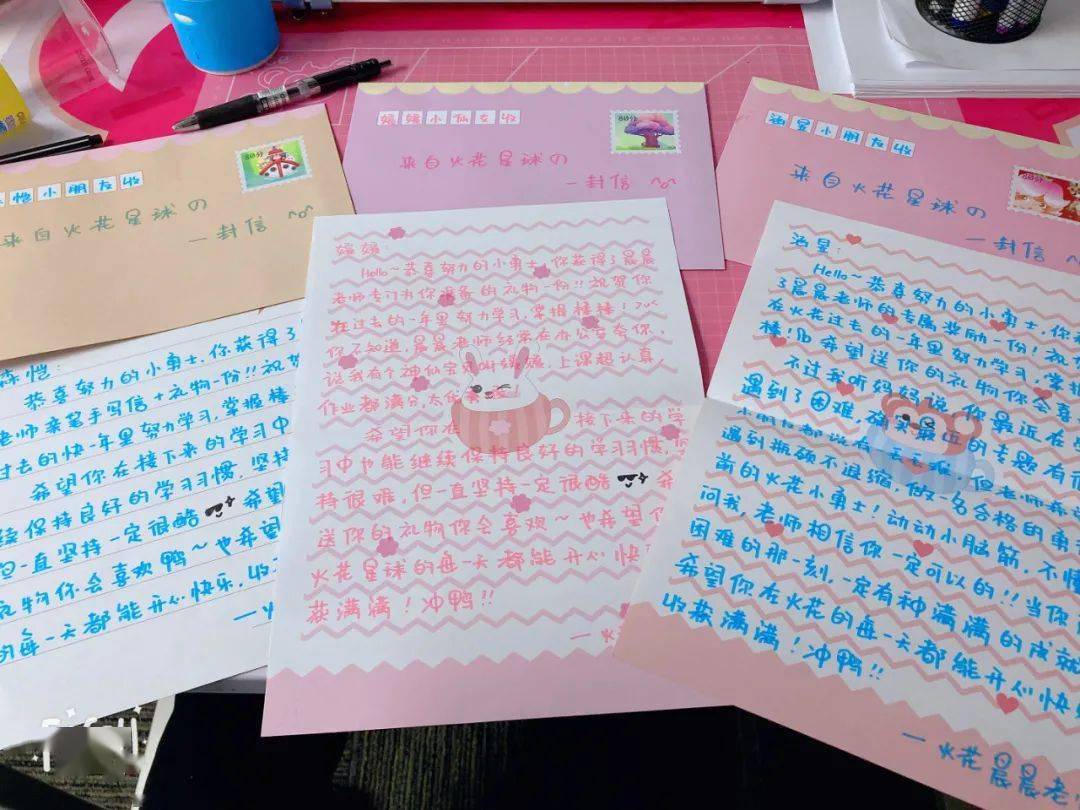 恺小朋友收
来自火花星球の
一封信 ^o^
80分
嫣嫣小仙女收
来自火花星球の
一封信 ^o^
80分
涵昱小朋友收
来自火花星球の
一封信 ^o^
80分
森恺:
恭喜努力的小勇士,你获得了
老师亲笔手写信+礼物一份!!祝贺
过去的快一年里努力学习,掌握棒
希望你在接下来的学习中
续保持良好的学习习惯,坚持
但一直坚持一定很酷 希望
礼物你会喜欢鸭~也希望
的每一天都能开心快乐,收
嫣嫣:
Hello~恭喜努力的小勇士,你获得了晨晨
老师专门为你准备的礼物一份!!祝贺你
在过去的一年里努力学习,掌握棒棒!
你不知道,晨晨老师经常在办公室夸你,
说我有个神仙宝贝叫嫣嫣,上课超认真,
作业都满分,太优秀
希望你在 接下来的学
习中也能继续保持良好的学习习惯,
持很难,但一直坚持一定很酷 希
送你的礼物你会喜欢~也希望你
火花星球的每一天都能开心快
获满满!冲鸭!!
涵昱:
Hello~恭喜努力的小勇士,你
了晨晨老师的专属奖励一份!祝
在火花过去的一年里努力学习,掌握
棒!也希望送你的礼物你会喜
不过我听妈妈说,你最近在
遇到了困难,确实最近的专题有
遇到瓶颈不退缩,做一名合格的勇
敢的火花小勇士!动动小脑筋,不懂
问我,老师相信你一定可以的!!当你
困难的那一刻,一定有种满满的成就
希望你在火花的每一天都能开心快
收获满满!冲鸭!!
—火花晨晨老